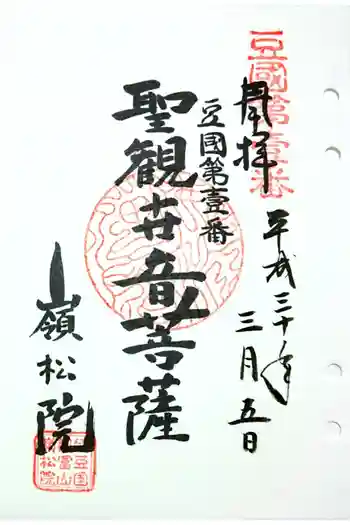 豆國第壹番
奉拝
平成三十年
三月五日
豆國第壹番
聖観世音菩薩
嶺松院
豆国
冨山
嶺松院